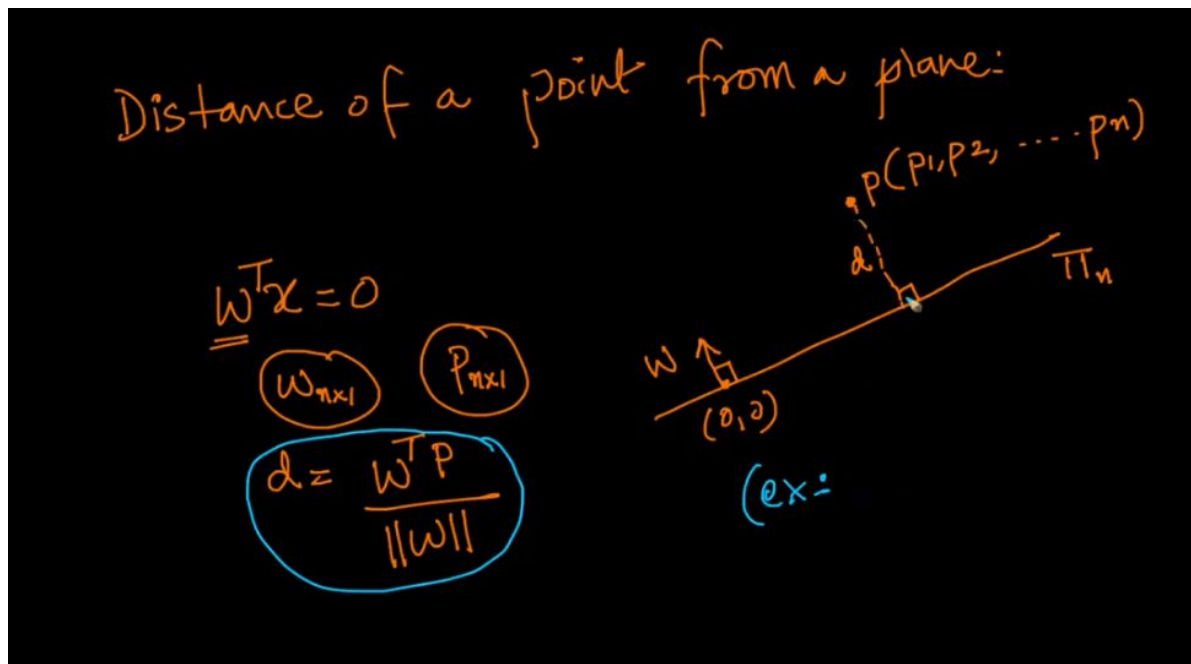 Distance of a point from a plane:
P(P1,P2, ....Pn)
d
πn
wᵀx=0
w
wn×1 Pn×1
(0,0)
d= wᵀP
||w||
(ex: